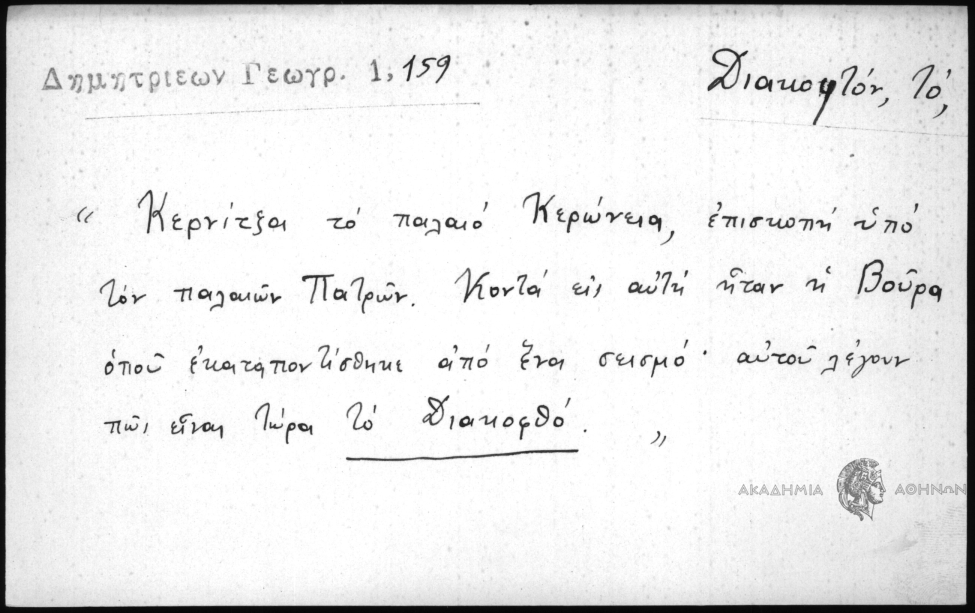 Δημητριεων Γεωγρ. 1, 159
Διακοφτόν, τό,
“ Κερνίτξαι τό παλαιό Κερώνεια, ἐπισκοπή ὑπό
τόν παλαιῶν Πατρῶν. Κοντά εἰς αὐτή ἦταν ἡ Βοῦρα
ὁποῦ ἐκαταποντίσθηκε ἀπό ἕνα σεισμό· αὐτοῦ λέγουν
πῶς εἶναι τώρα τό Διακοφθό. ”
ΑΚΑΔΗΜΙΑ ΑΘΗΝΩΝ